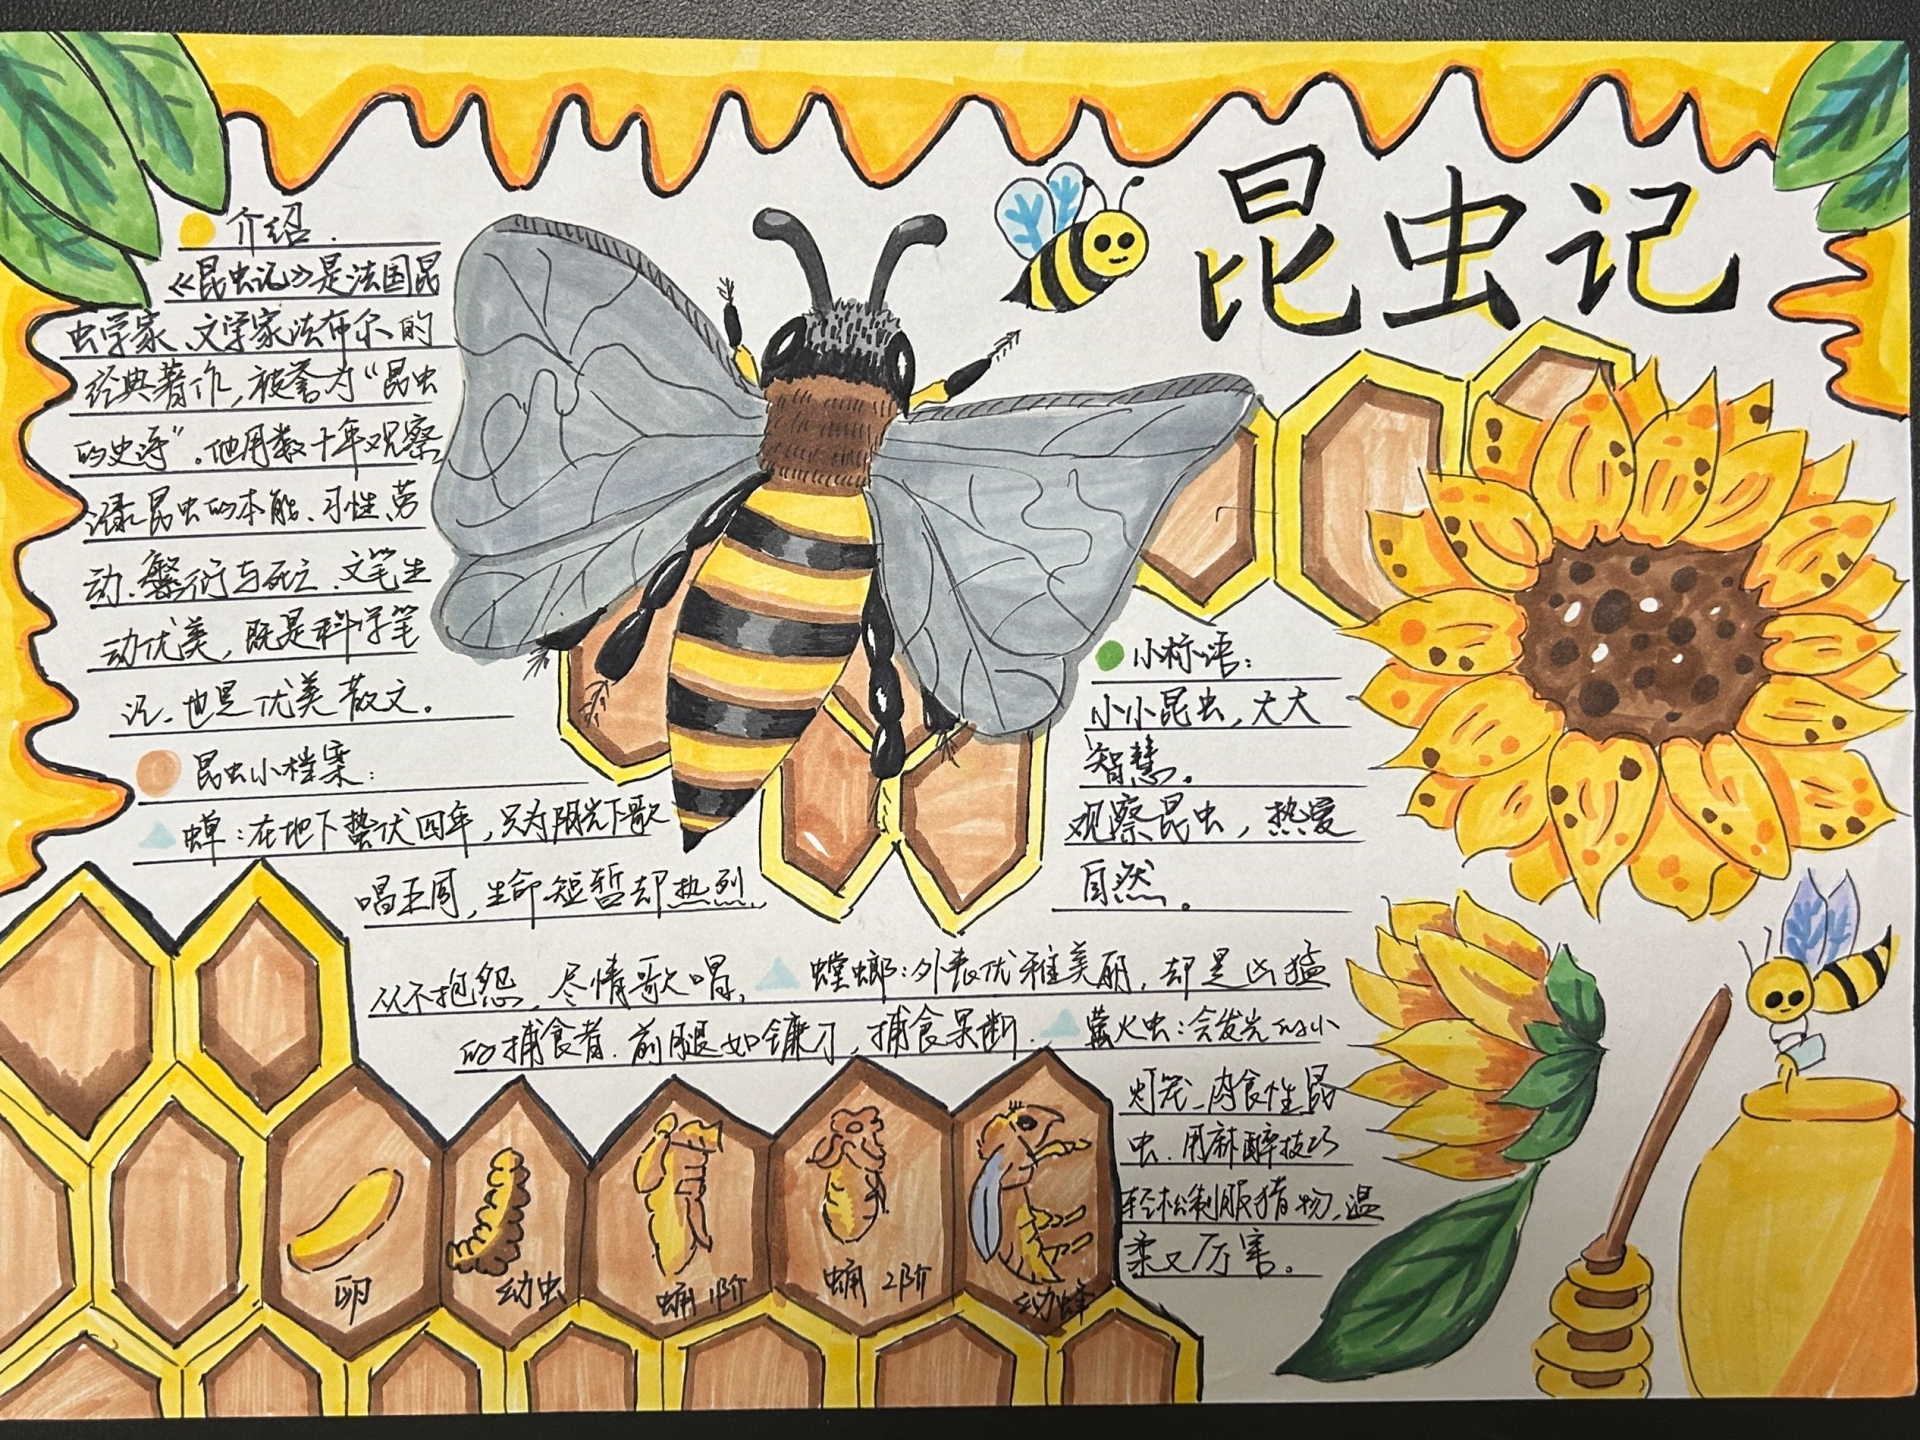 昆虫记
介绍.
《昆虫记》是法国昆
虫学家、文学家法布尔的
经典著作,被誉为“昆虫
的史诗”。他用数十年观察
记录昆虫的本能、习性、劳
动、繁衍与死亡、文笔生
动优美,既是科学笔
记、也是优美散文。
昆虫小档案:
蝉:在地下蛰伏四年,只为阳光下歌
唱五周,生命短暂却热烈.
从不抱怨、尽情歌唱、
螳螂:外表优雅美丽,却是凶猛
的捕食者.前腿如镰刀,捕食果断.
萤火虫:会发光的小
灯笼、肉食性昆
虫.用麻醉技巧
轻松制服猎物、温
柔又厉害。
小标语:
小小昆虫,大大
智慧。
观察昆虫,热爱
自然。
卵
幼虫
蛹1阶
蛹2阶
幼蜂